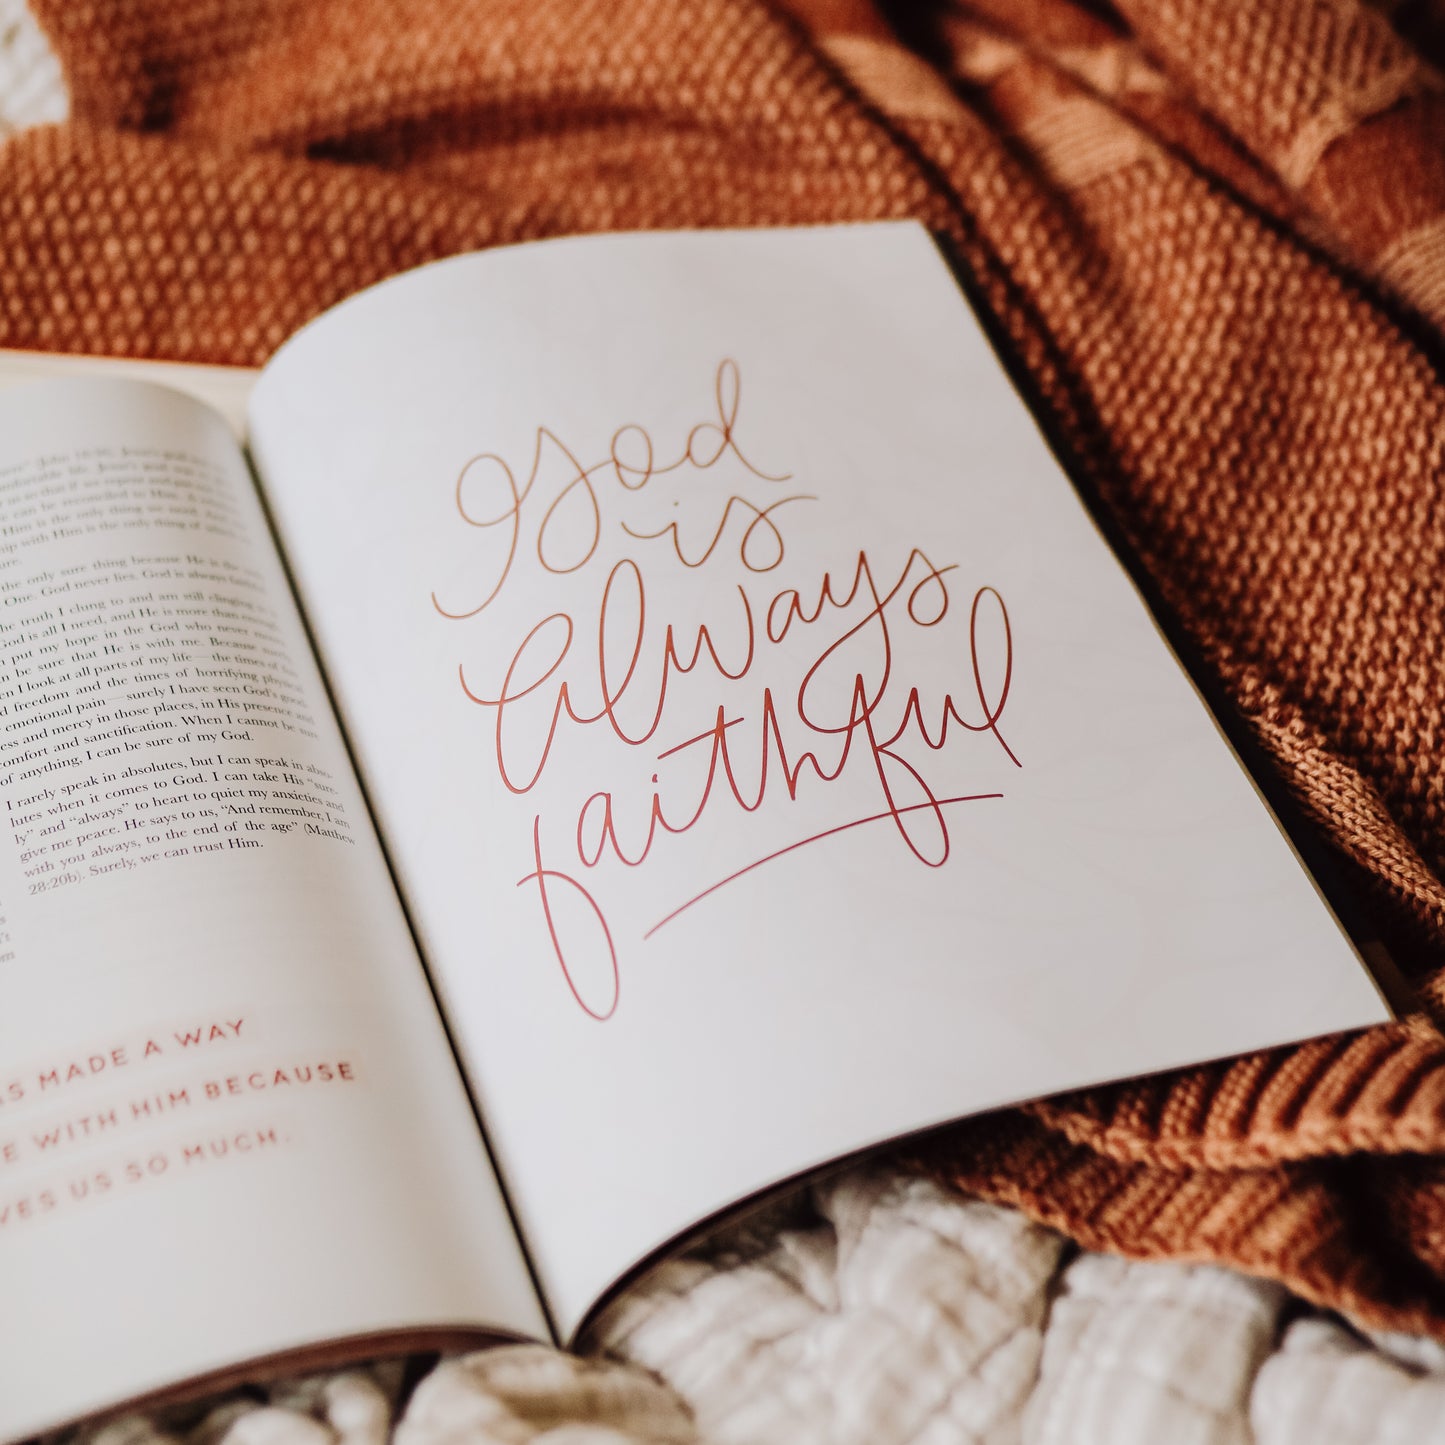 (John 16:
comfortable life. Jesus's goal was
us so that if we repent and put our
can be reconciled to Him. A
Him is the only thing we need. And
with Him is the only thing of which
the only sure thing because He is the
One. God never lies. God is always
the truth I clung to and am still clinging to
God is all I need, and He is more than enough.
put my hope in the God who never
be sure that He is with me. Because
I look at all parts of my life—the times of
freedom and the times of horrifying physical
emotional pain—surely I have seen God's good-
ess and mercy in those places, in His presence and
comfort and sanctification. When I cannot be sure
of anything, I can be sure of my God.
I rarely speak in absolutes, but I can speak in abso-
lutes when it comes to God. I can take His "sure-
ly" and "always" to heart to quiet my anxieties and
give me peace. He says to us, "And remember, I am
with you always, to the end of the age" (Matthew
28:20b). Surely, we can trust Him.
AS MADE A WAY
E WITH HIM BECAUSE
VES US SO MUCH.
God
is
always
faithful